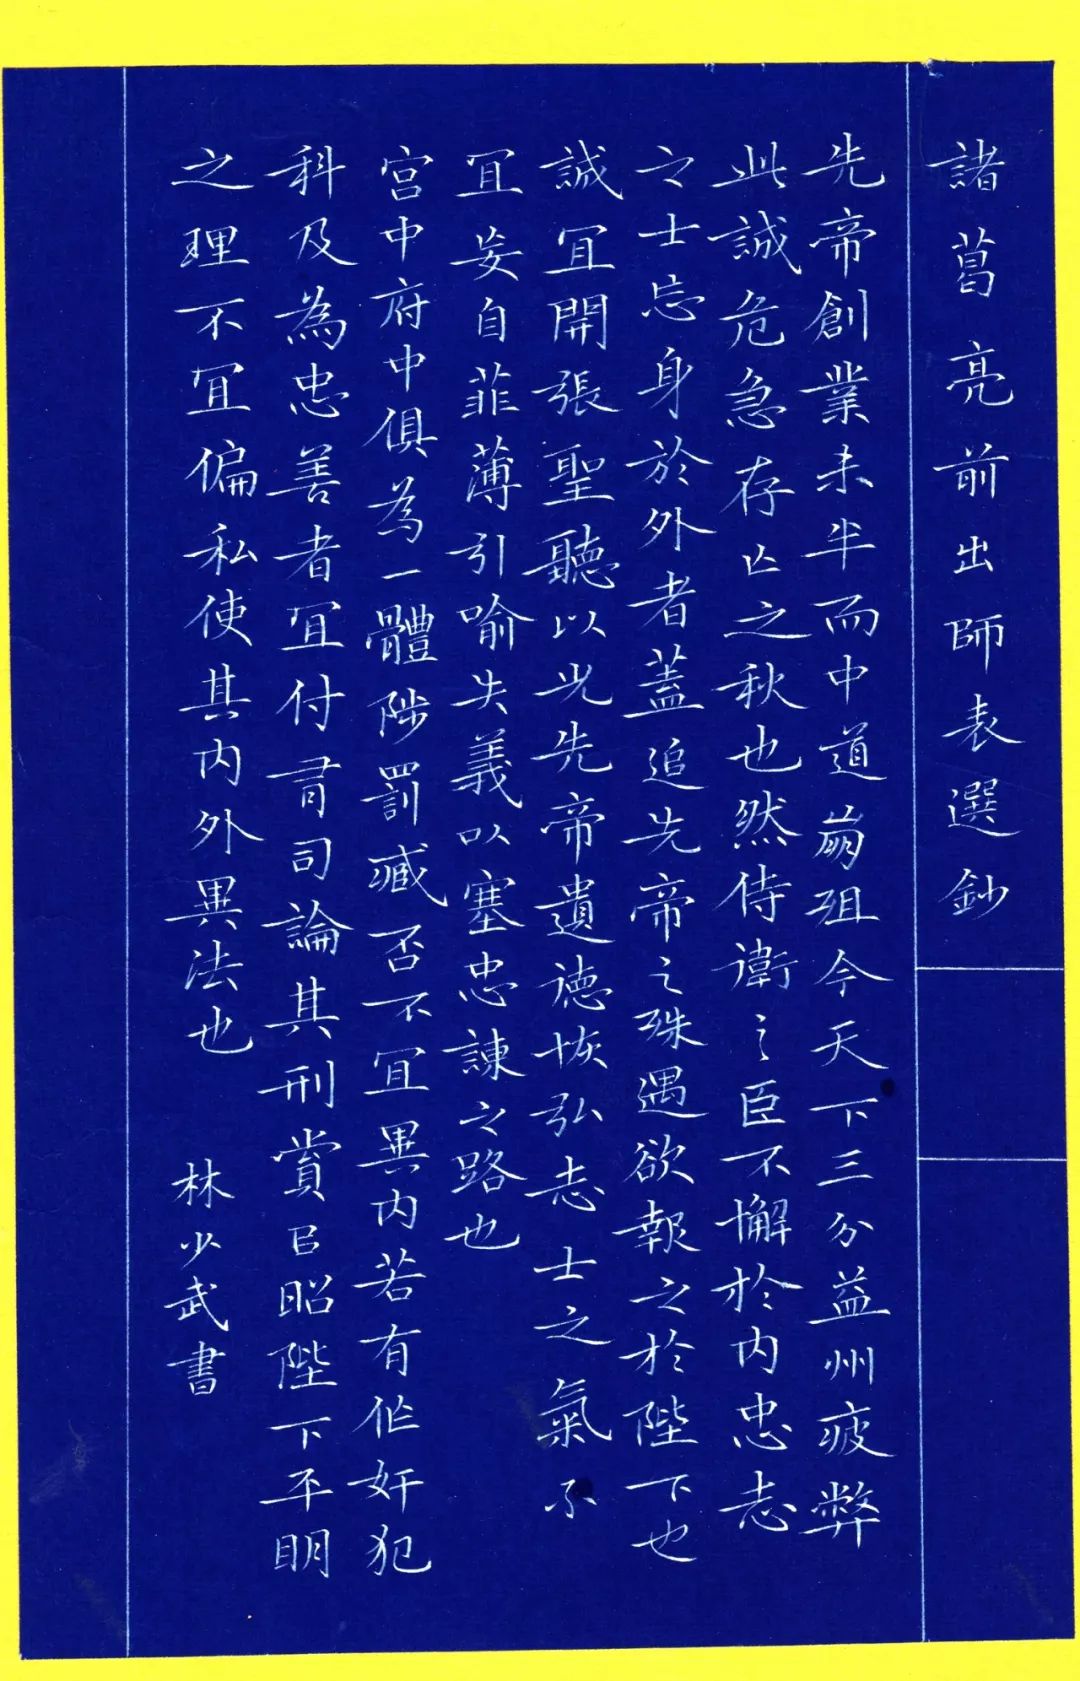 諸葛亮前出師表選鈔
先帝創業未半而中道崩殂今天下三分益州疲弊
此誠危急存亡之秋也然侍衛之臣不懈於內忠志
之士忘身於外者蓋追先帝之殊遇欲報之於陛下也
誠宜開張聖聽以光先帝遺德恢弘志士之氣不
宜妄自菲薄引喻失義以塞忠諫之路也
宮中府中俱為一體陟罰臧否不宜異內若有作奸犯
科及為忠善者宜付有司論其刑賞以昭陛下平明
之理不宜偏私使其內外異法也
林少武書